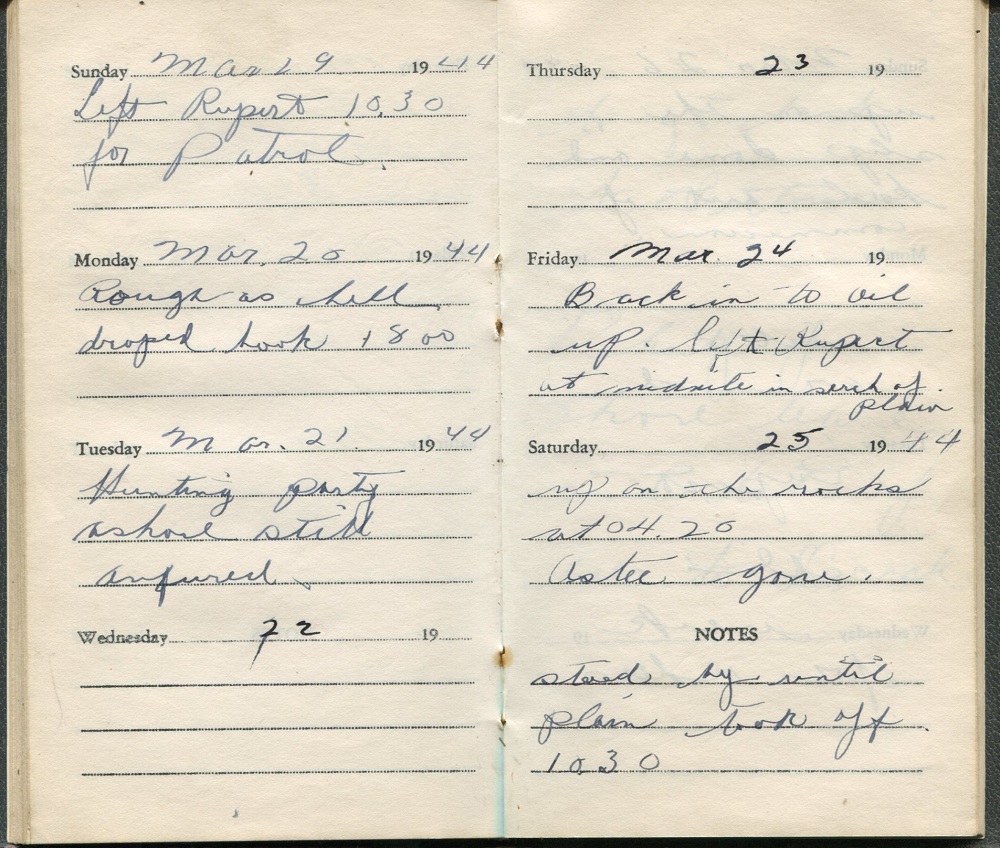 Sunday Mar 19 1944
Left Rupert 10.30
for Patrol.
Monday Mar. 20 1944
Rough as hell
droped hook 1800
Tuesday Mar. 21 1944
Hunting party
ashore still
anfured
Wednesday 22 19
Thursday 23 19
Friday Mar. 24 19
Back in to oil
up. left Rupert
at midnite in serch of
plain
Saturday 25 1944
up on the rocks
at 04.20
gone.
NOTES
stood by until
plain took off
1030